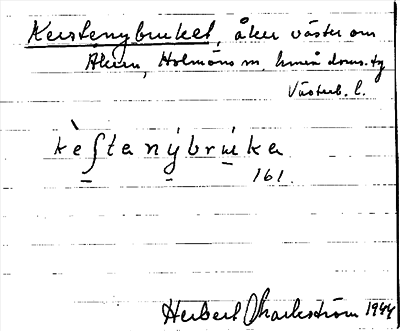 Kerstenybruket, åker väster om
Åkern, Holmöns sn, Umeå doms. tg
Västerb. l.
kèʃtanýbrɯ́ka
161.
Herbert Markström 1944